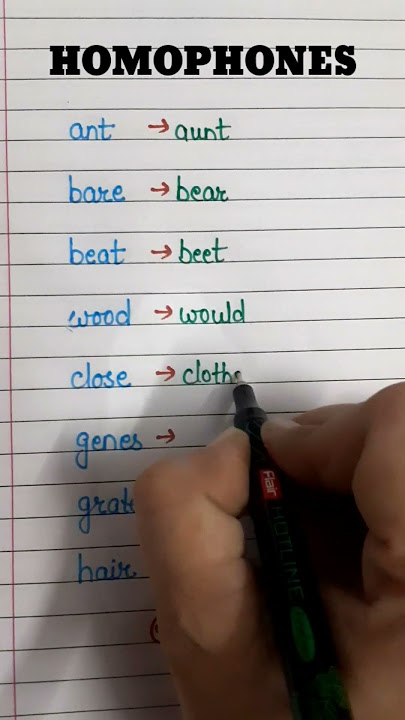 HOMOPHONES
ant → aunt
bare → bear
beat → beet
wood → would
close → cloth
genes →
grat
hair
Flair HOTLINE